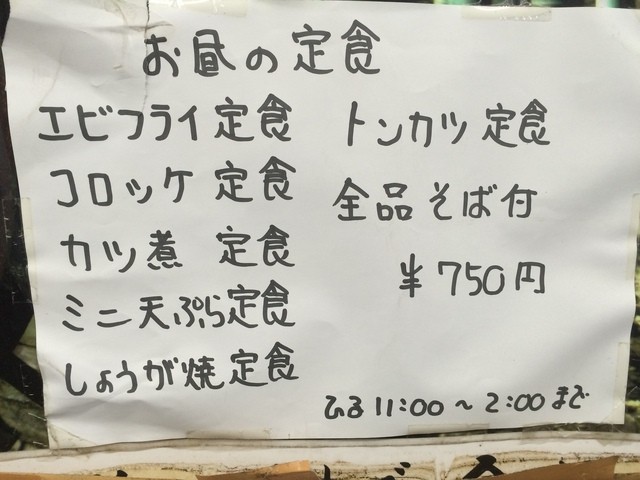 お昼の定食
エビフライ定食
コロッケ定食
カツ煮 定食
ミニ天ぷら定食
しょうが焼定食
トンカツ定食
全品そば付
半750円
ひる 11:00～2:00まで